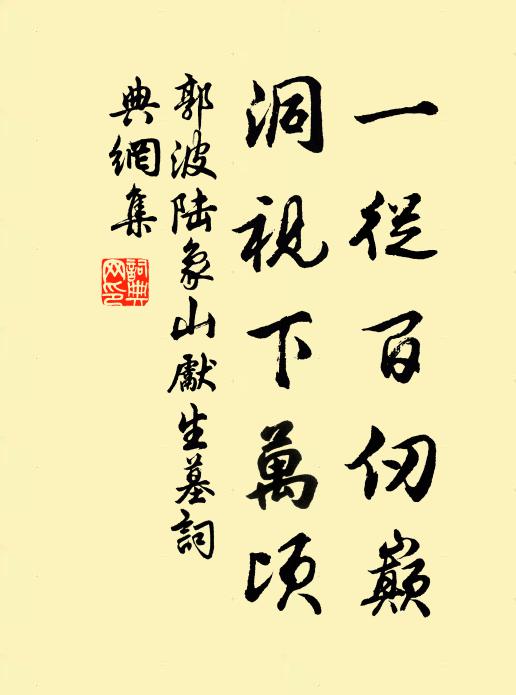 一從百仞巔
洞視下萬頃
郭波陆象山獻生墓詞
典網集
詞典
网印